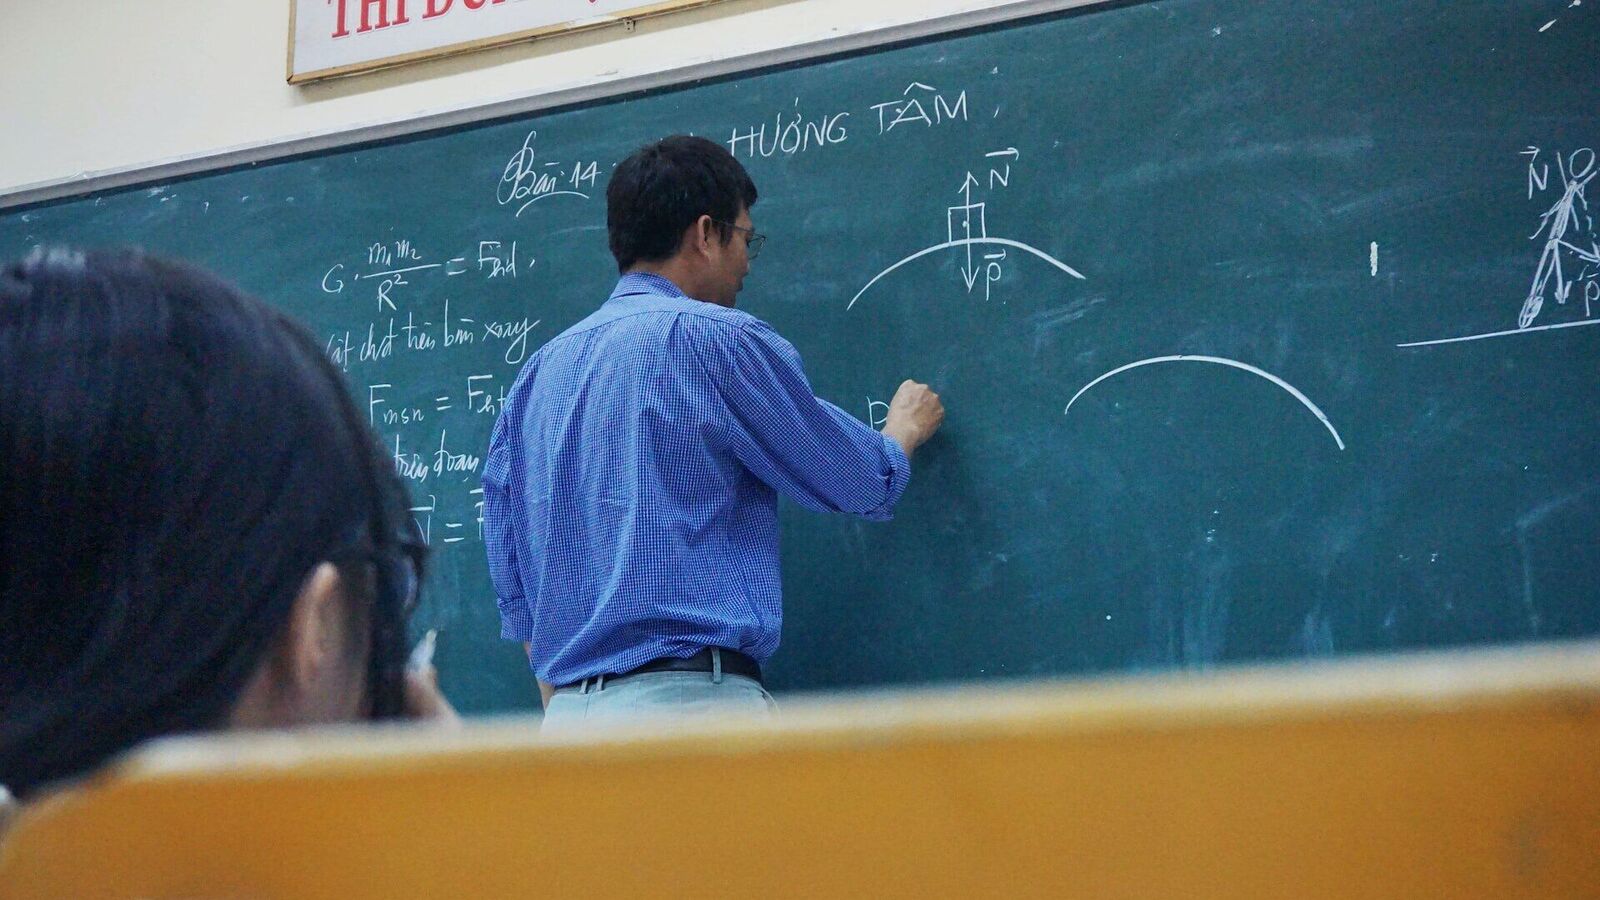 THI
Bài 14
HƯỚNG TÂM
G. m₁m₂ / R² = Fhd.
N
P
N
P
vật chđ trên bàn xoay
Fmsn = Fht
trên đoạn
N =
P